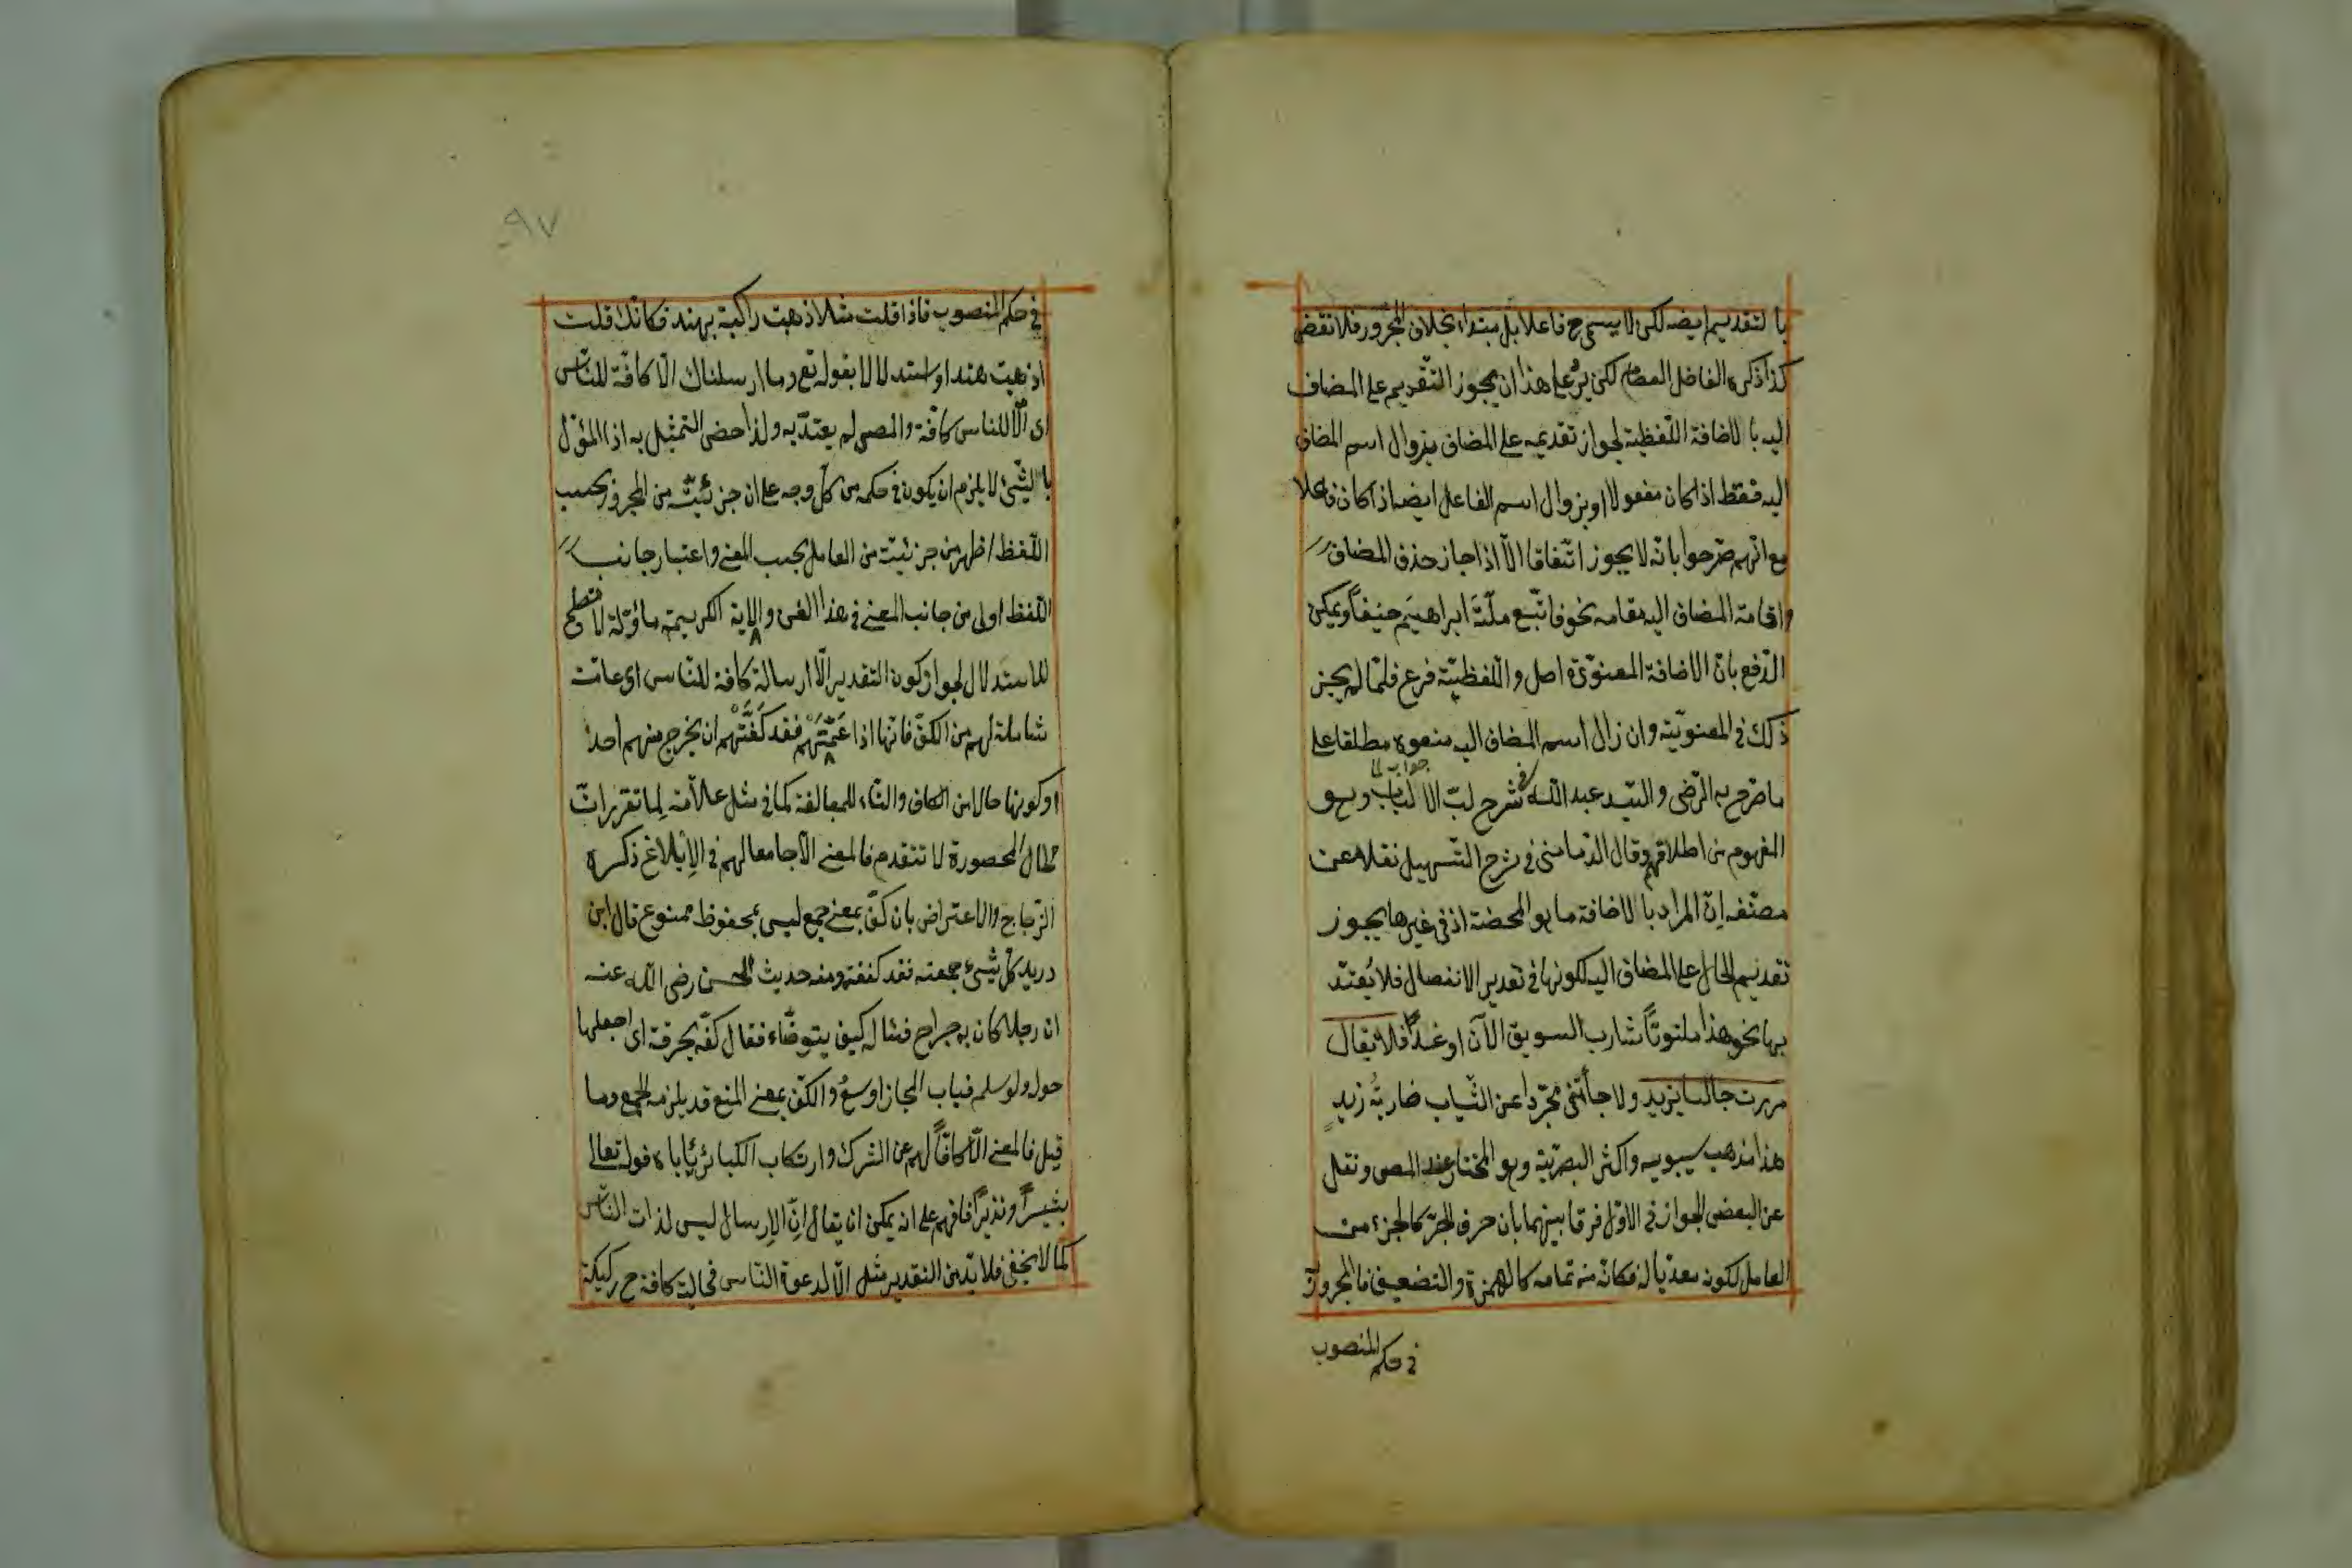 بالتقديم ايضه لكن لا يسمى ح فاعلا بل مبتداء بخلاف المجرور فلا نقض
كذا ذكره الفاضل العصام لكن يرد على هذا ان يجوز التقديم على المضاف
اليه بالاضافة اللفظية لجواز تقديمه على المضاف بزوال اسم المضاف
اليه فقط اذا كان مفعولا او بزوال اسم الفاعل ايضا اذا كان فاعلا
مع انهم صرحوا بانه لا يجوز اتفاقا الا اذا جاز حذف المضاف
واقامة المضاف اليه مقامه نحو فاتبع ملة ابراهيم حنيفا ويمكن
الدفع بان الاضافة المعنوية اصل واللفظية فرع فلما لم يجز
ذلك في المعنوية وان زال اسم المضاف اليه منعوه مطلقا على
جواب لما
ما صرح به الرضى والسيد عبد الله في شرح لب الالباب وهو
المفهوم من اطلاقهم وقال الدماميني في شرح التسهيل نقلا عن
مصنفه ان المراد بالاضافة ما هو المحضة اذ في غيرها يجوز
تقديم الحال على المضاف اليه لكونها في تقدير الانفصال فلا يعتد
بها نحو هذا ملتوتا شارب السويق الآن او غدا فلا يقال
مررت جالسا بزيد ولا جاءتني مجردا عن الثياب ضاربة زيد
هذا مذهب سيبويه واكثر البصرية وهو المختار عند المص ونقل
عن البعض الجواز في الاول فرقا بينهما بان حرف الجر كالجزء من
العامل لكونه معديا له فكانه من تمامه كالهمزة والتضعيف فالمجرور
في حكم المنصوب
٩٧
في حكم المنصوب فاذا قلت مثلا ذهبت راكبة بهند فكانك قلت
اذهبت هندا واستدلالا بقوله تع وما ارسلناك الا كافة للناس
اى الا للناس كافة والمص لم يعتد به ولذا خص التمثيل به اذ المؤل
بالشئ لا يلزم ان يكون في حكمه من كل وجه على ان جزئيته من المجرور بحسب
اللفظ اظهر من جزئيته من العامل بحسب المعنى واعتبار جانب
اللفظ اولى من جانب المعنى في هذا الفن والاية الكريمة مأولة لا تصلح
للاستدلال لجواز كون التقدير الا ارسالة كافة للناس اى عامة
شاملة لهم من الكف فانها اذا عمتهم فقد كفتهم ان يخرج منهم احد
او كونها حالا من الكاف والتاء للمبالغة كما في مثل علامة لما تقرر ان
الحال المحصورة لا تتقدم فالمعنى الا جامعا لهم في الابلاغ ذكره
الزجاج والاعتراض بان كف بمعنى جمع ليس بمحفوظ ممنوع قال ابن
دريد كل شئ جمعته فقد كففته ومنه حديث الحسن رضى الله عنه
ان رجلا كان به جراح فساله كيف يتوضاء فقال كفه بخرقة اى اجعلها
حوله ولو سلم فباب المجاز اوسع والكف بمعنى المنع قد يلزمه الجمع وما
قيل فالمعنى الا كافا لهم عن الشرك وارتكاب الكبائر ياباه قوله تعالى
بشيرا ونذيرا فافهم على انه يمكن ان يقال ان الارسال ليس لذات الناس
كما لا يخفى فلا بد من التقدير مثل الا لدعوة الناس فحالية كافة ح ركيكة